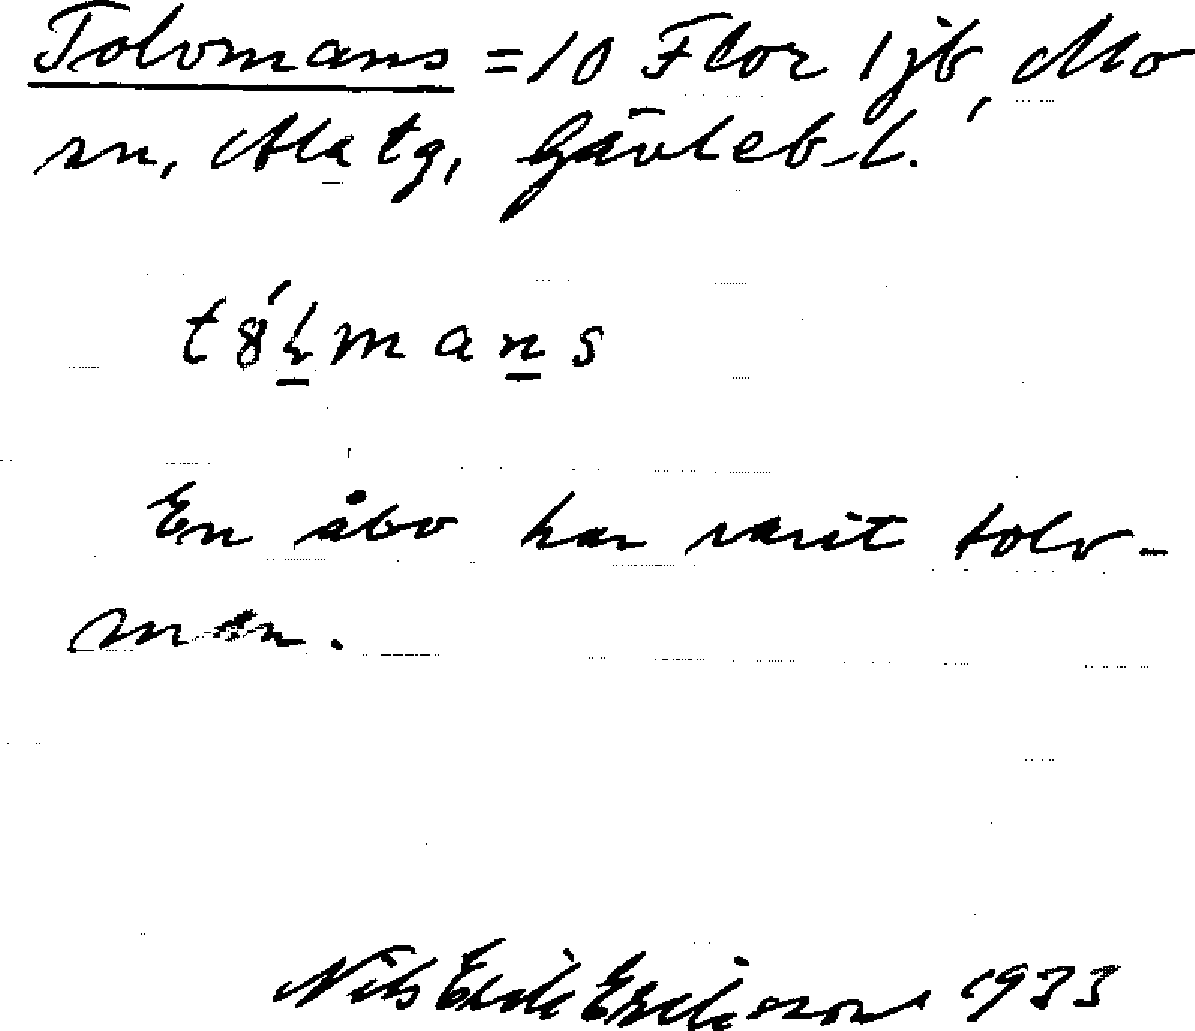 Tolvmans = 10 Flor 1 jb, Mo
sn, Ala tg, Gävleb l.
tȣ́lmans
En åbo har varit tolv-
man.
Nils Erik Ericsson 1933